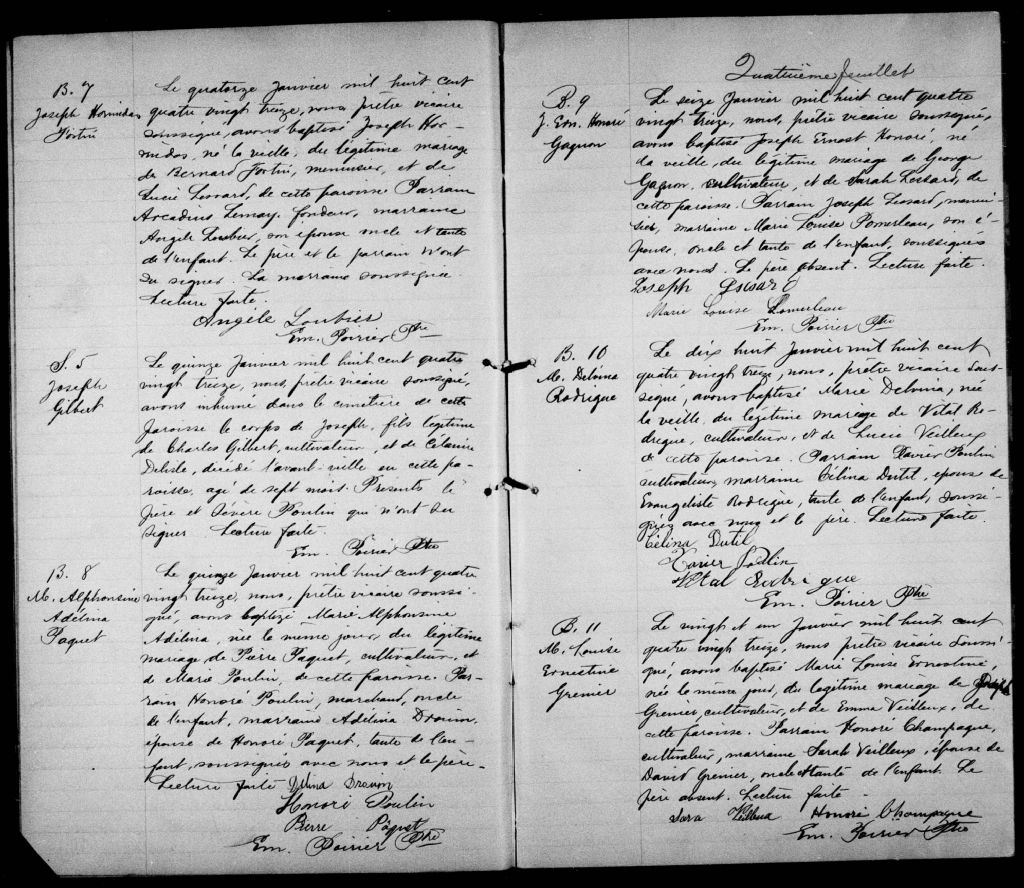 B. 7
Joseph Hormidas
Fortin
Le quatorze Janvier mil huit cent
quatre vingt treize, nous, prêtre vicaire
soussigné, avons baptisé Joseph Hor-
midas, né la veille, du légitime mariage
de Bernard Fortin, menuisier, et de
Lucie Lessard, de cette paroisse Parrain
Arcadius Lemay, fondeur, marraine
Angèle Loubier, son épouse oncle et tante
de l'enfant. Le père et le parrain n'ont
su signer. La marraine soussignée
Lecture faite.
Angèle Loubier
Em. Poirier Ptre
S. 5
Joseph
Gilbert
Le quinze Janvier mil huit cent quatre
vingt treize, nous, prêtre vicaire soussigné,
avons inhumé dans le cimetière de cette
paroisse le corps de Joseph, fils légitime
de Charles Gilbert, cultivateur, et de Célanire
Delisle, décédé l'avant-veille en cette pa-
roisse, agé de sept mois. Présents le
père et Sévère Poulin qui n'ont su
signer. Lecture faite.
Em. Poirier Ptre
B. 8
M. Alphonsine
Adélina
Paquet
Le quinze Janvier mil huit cent quatre
vingt treize, nous, prêtre vicaire soussi-
gné, avons baptisé Marie Alphonsine
Adélina, née le même jour, du légitime
mariage de Pierre Paquet, cultivateur, et
de Marie Poulin, de cette paroisse. Par-
rain Honoré Poulin, marchand, oncle
de l'enfant, marraine Adélina Drouin,
épouse de Honoré Paquet, tante de l'en-
fant, soussignés avec nous et le père.
Lecture faite Delina Drouin
Honoré Poulin
Pierre Paquet
Em. Poirier Ptre
Quatrième feuillet
B. 9
J. Ern. Honoré
Gagnon
Le seize Janvier mil huit cent quatre
vingt treize, nous, prêtre vicaire soussigné,
avons baptisé Joseph Ernest Honoré, né
la veille, du légitime mariage de George
Gagnon, cultivateur, et de Sarah Lessard, de
cette paroisse. Parrain Joseph Lessard, menui-
sier, marraine Marie Louise Pomerleau, son é-
pouse, oncle et tante de l'enfant, soussignés
avec nous. Le père absent. Lecture faite.
Joseph Lessard
Marie Louise Pomerleau
Em. Poirier Ptre
B. 10
M. Delvina
Rodrigue
Le dix huit Janvier mil huit cent
quatre vingt treize, nous, prêtre vicaire sous-
signé, avons baptisé Marie Delvina, née
la veille, du légitime mariage de Vital Ro-
drigue, cultivateur, et de Lucie Veilleux
de cette paroisse. Parrain Xavier Poulin
cultivateur, marraine Célina Dutil, épouse de
Evangeliste Rodrigue, tante de l'enfant, soussi-
gnés avec nous et le père. Lecture faite.
Célina Dutil
Xavier Poulin
Vital Rodrigue
Em. Poirier Ptre
B. 11
M. Louise
Ernestine
Grenier
Le vingt et un Janvier mil huit cent
quatre vingt treize, nous prêtre vicaire soussi-
gné, avons baptisé Marie Louise Ernestine,
née le même jour, du légitime mariage de Joseph
Grenier, cultivateur, et de Emma Veilleux, de
cette paroisse. Parrain Honoré Champagne,
cultivateur, marraine Sarah Veilleux, épouse de
David Grenier, oncle et tante de l'enfant. Le
père absent. Lecture faite.
Sara Veilleux Honoré Champagne
Em. Poirier Ptre